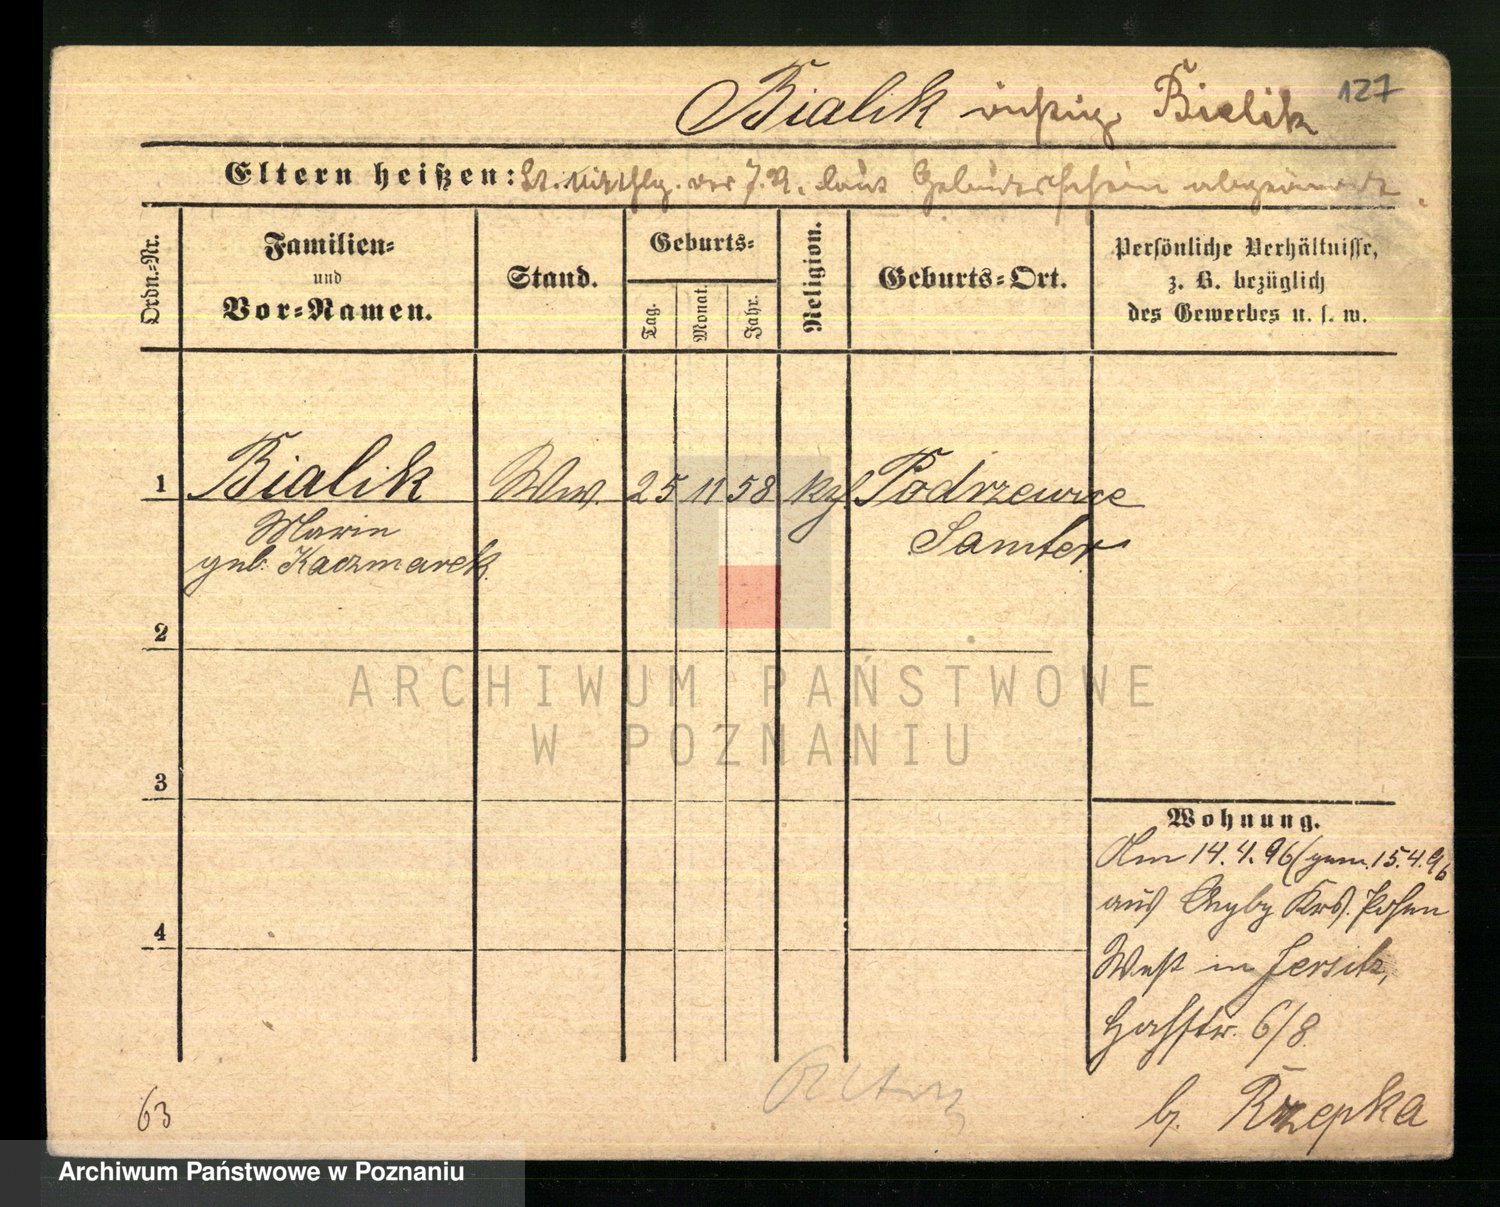 Bialik richtig Bielik 127
Eltern heißen: lt. der laut Geburtsschein
Ordn.-Nr.
Familien-
und
Vor-Namen.
Stand.
Geburts-
Tag.
Monat.
Jahr.
Religion.
Geburts-Ort.
Persönliche Verhältnisse,
z. B. bezüglich
des Gewerbes u. s. w.
1 Bialik Ww. 25 11 58 Podrzewice
Marin Samter
geb. Kaczmarek
2
3
4
Wohnung.
Am 14.4.96 (gem. 15.4.96
aus Krs. Posen
West in Jersitz,
6/8.
b. Rzepka
63
ARCHIWUM PAŃSTWOWE
W POZNANIU
Archiwum Państwowe w Poznaniu